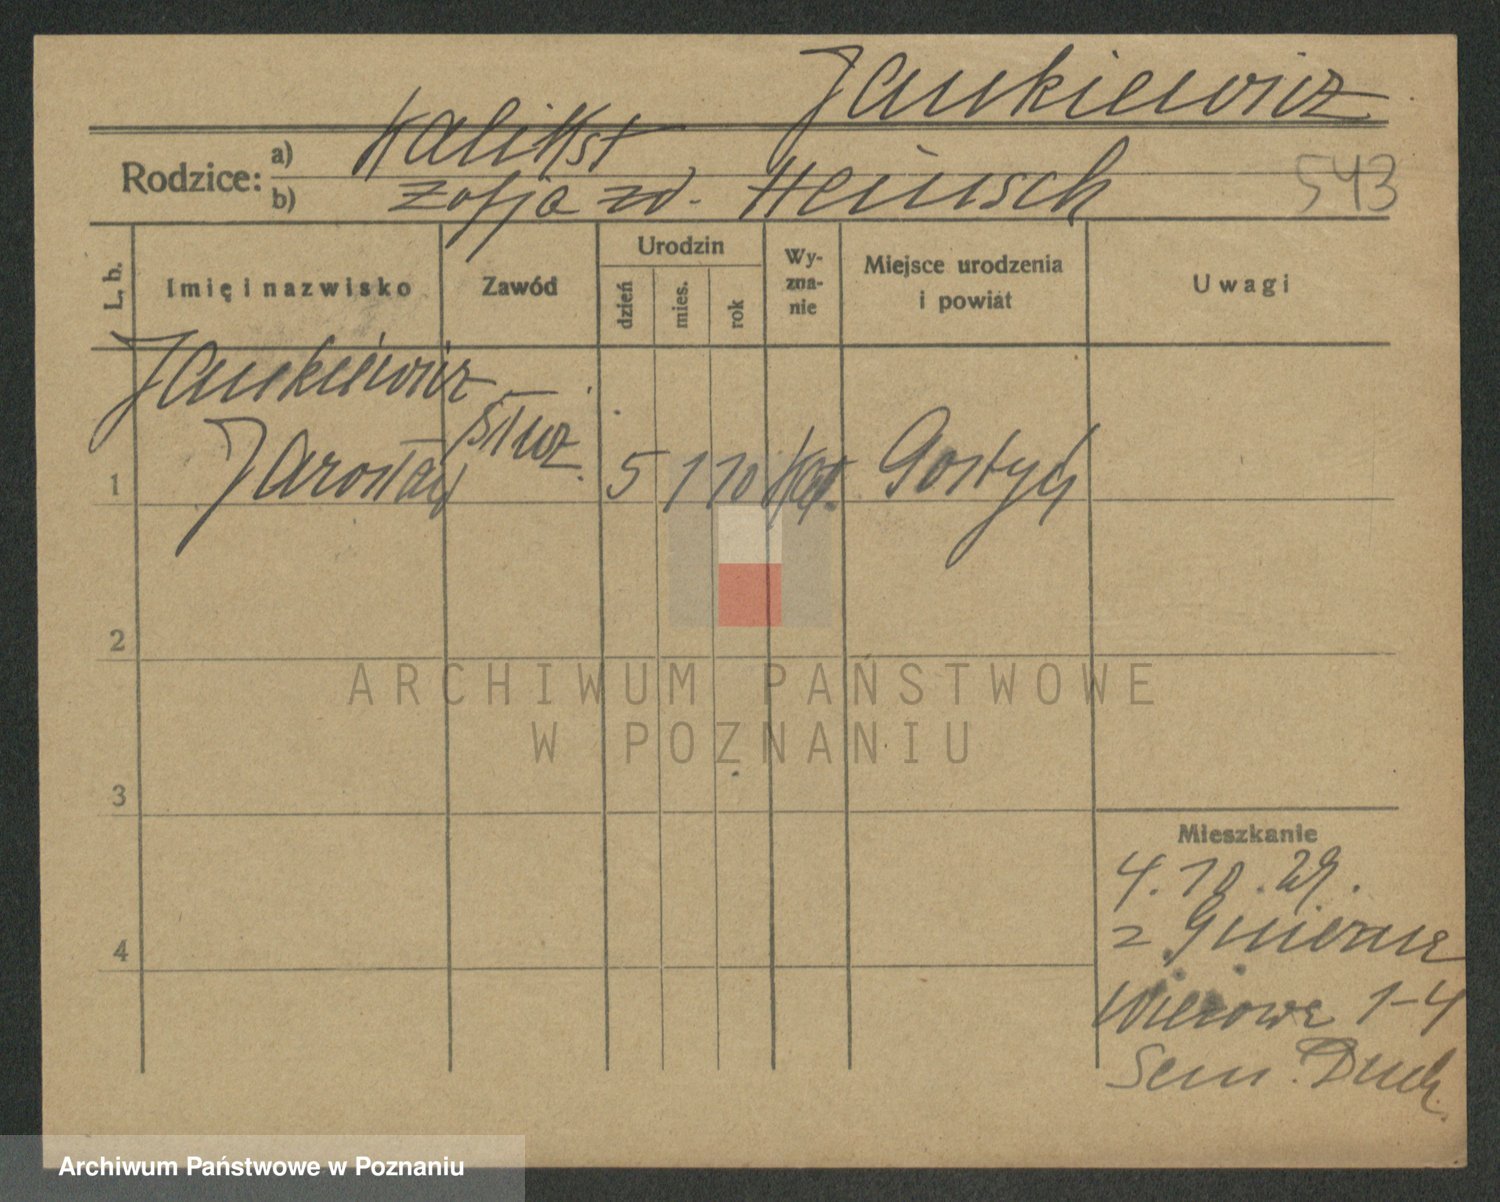 Jankiewicz
Rodzice: a) Kalikst
b) Zofja zd. Heinsch
543
L. b.
Imię i nazwisko
Zawód
Urodzin
dzień
mies.
rok
Wy-
zna-
nie
Miejsce urodzenia
i powiat
Uwagi
Jankiewicz
Jarosław
1
5 1 10 kat. Gostyń
2
ARCHIWUM PAŃSTWOWE
W POZNANIU
3
Mieszkanie
4. 10. 29.
z Gniezna
4
Wieżowa 1-4
Sem. Duch.
Archiwum Państwowe w Poznaniu